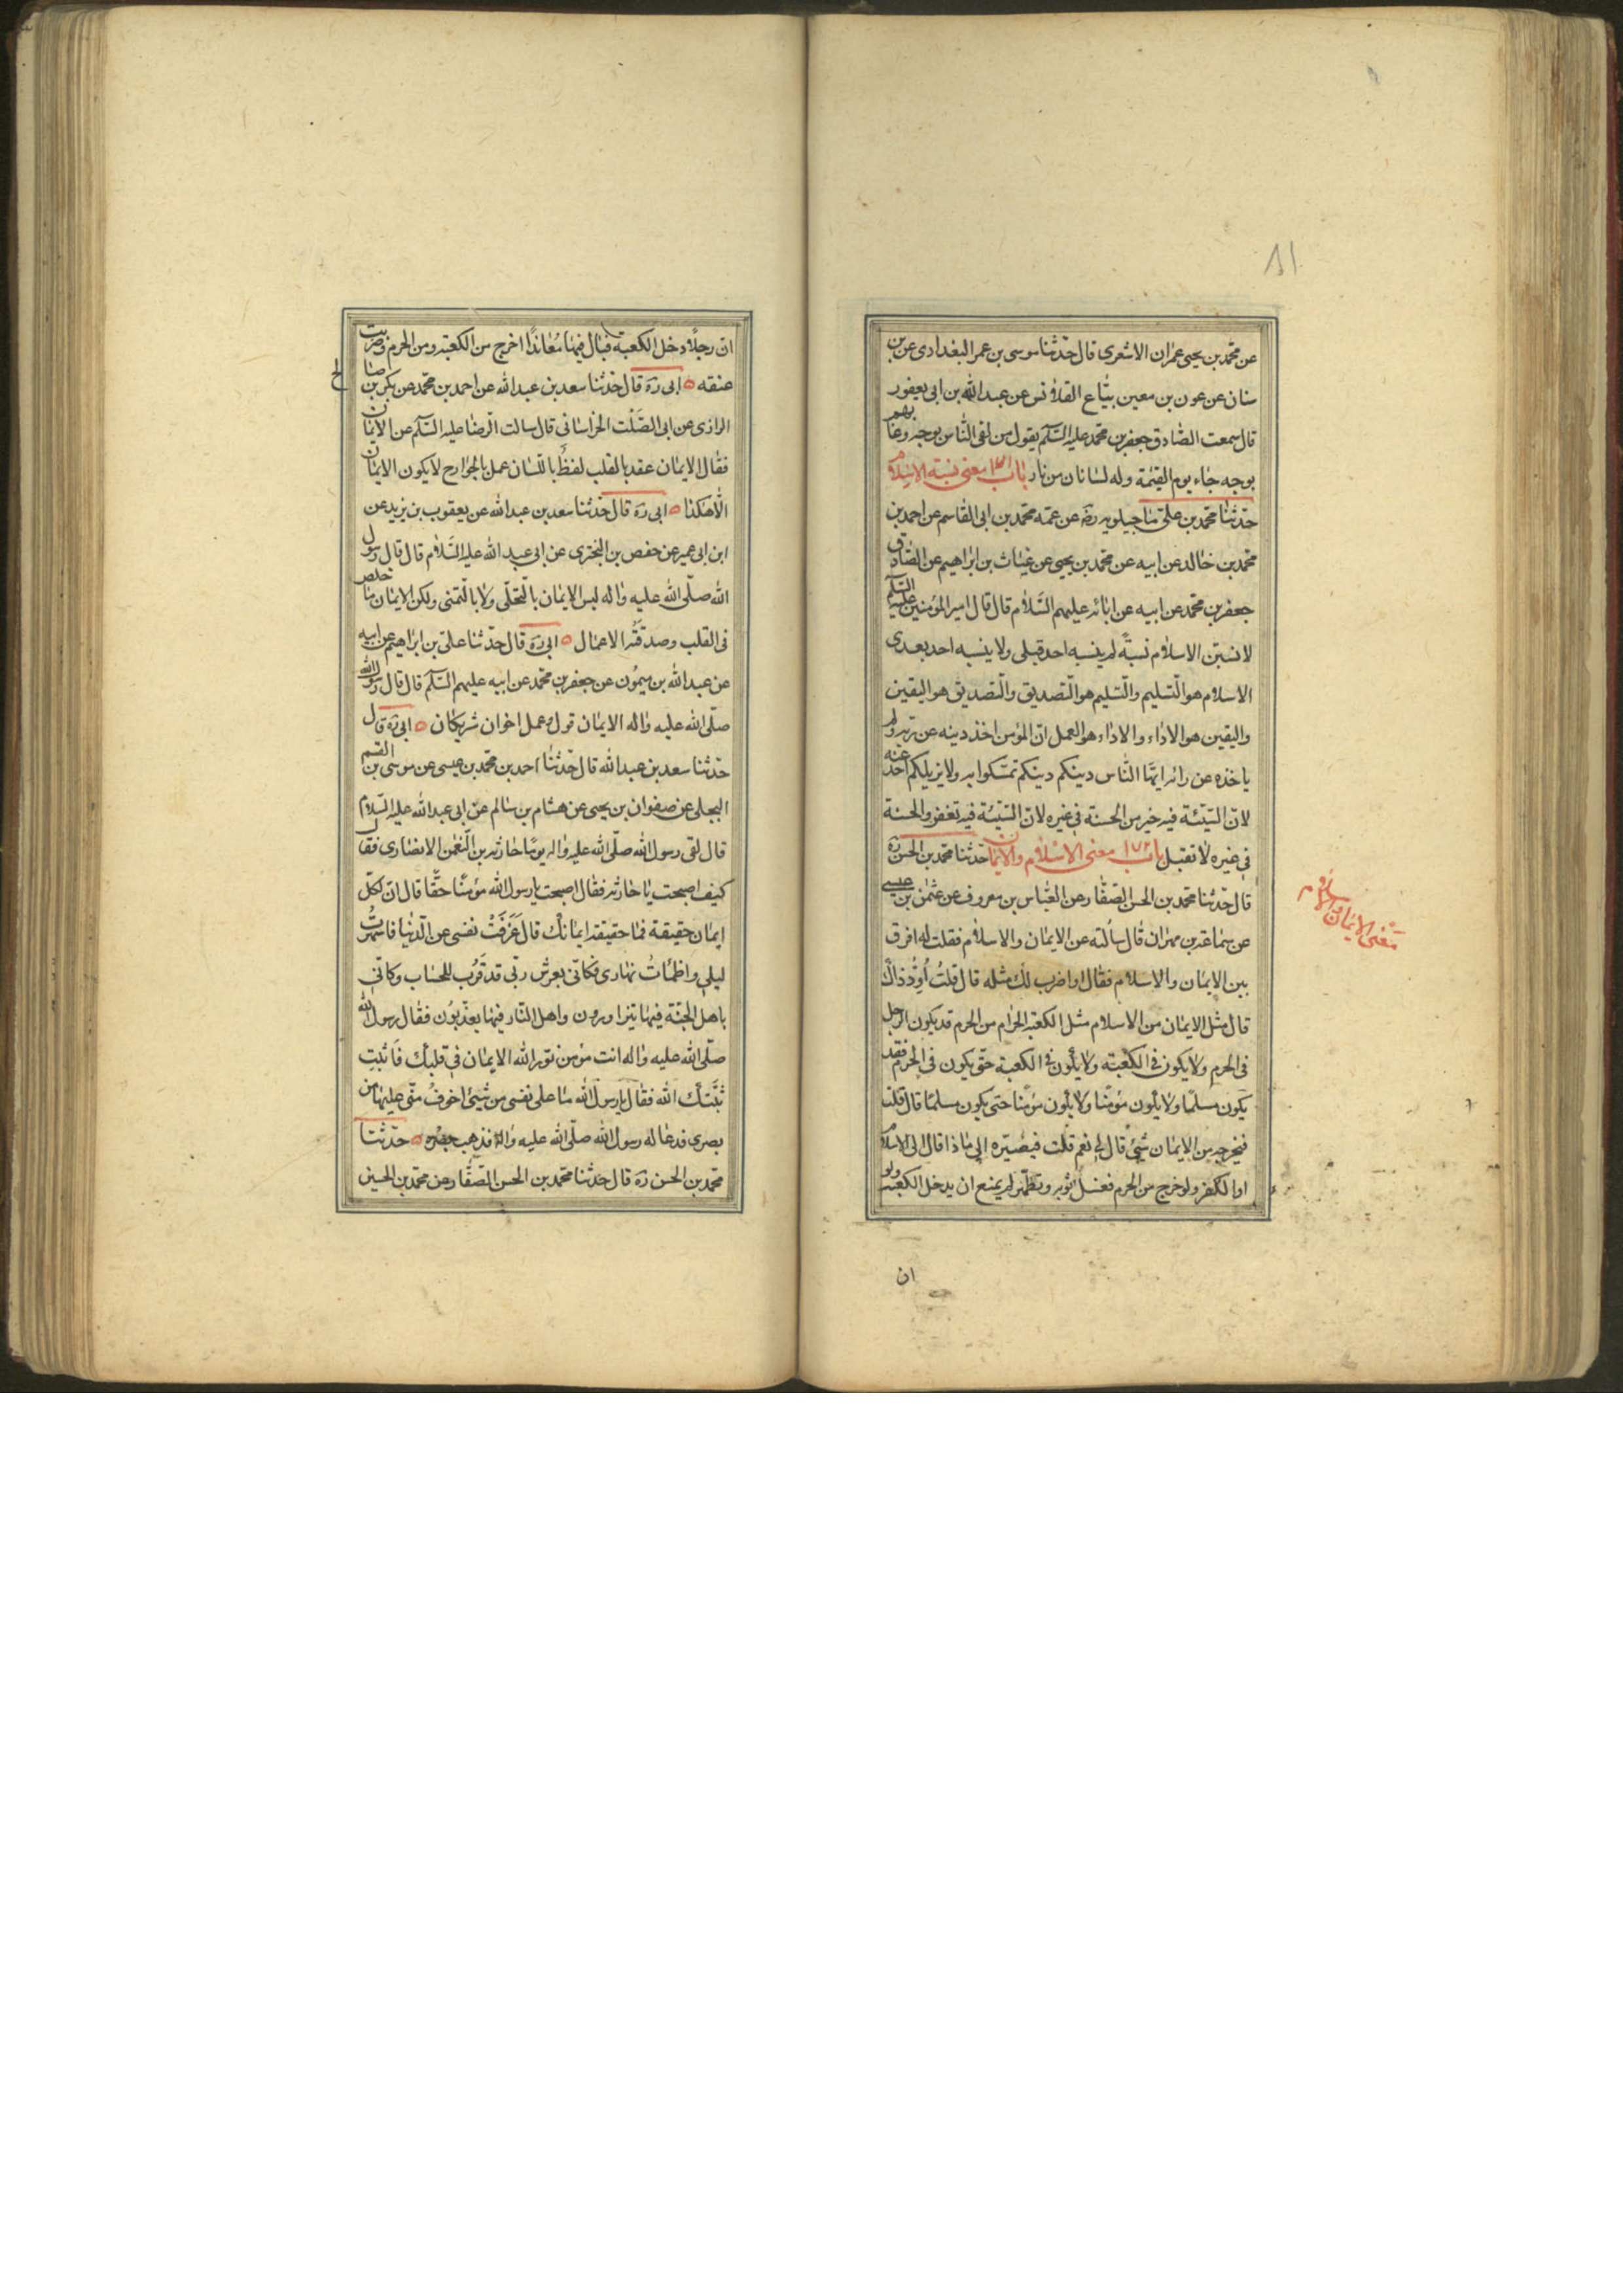 ٨١
عن محمد بن يحيى عمران الاشعرى قال حدثنا موسى بن عمر البغدادى عن بن
سنان عن عون بن معين بياع القلانس عن عبد الله بن ابى يعفور
قال سمعت الصادق جعفر بن محمد عليه السلم يقول من لقى الناس بوجه وعابهم
بوجه جاء يوم القيمة وله لسانان من نار باب معنى نسبة الاسلام
حدثنا محمد بن على ماجيلويه رضه عن عمه محمد بن ابى القاسم عن احمد بن
محمد بن خالد عن ابيه عن محمد بن يحيى عن غياث بن ابراهيم عن الصادق
جعفر بن محمد عن ابيه عن ابائه عليهم السلام قال قال امير المؤمنين عليه السلم
لانسبن الاسلام نسبة لم ينسبه احد قبلى ولا ينسبه احد بعدى
الاسلام هو التسليم والتسليم هو التصديق والتصديق هو اليقين
واليقين هو الاداء والاداء هو العمل ان المؤمن اخذ دينه عن ربه ولم
ياخذه عن رائه ايها الناس دينكم دينكم تمسكوا به ولا يزيلكم احد عنه
لان السيئة فيه خير من الحسنة فى غيره لان السيئة فيه تغفر والحسنة
فى غيره لا تقبل باب معنى الاسلام والايمان حدثنا محمد بن الحسن ره
قال حدثنا محمد بن الحسن الصفار عن العباس بن معروف عن عثمن بن عيسى
عن سماعة بن مهران قال سالته عن الايمان والاسلام فقلت له افرق
بين الايمان والاسلام فقال او اضرب لك مثله قال قلت اود ذاك
قال مثل الايمان من الاسلام مثل الكعبة الحرام من الحرم قد يكون الرجل
فى الحرم ولا يكون فى الكعبة ولا يكون فى الكعبة حتى يكون فى الحرم فقد
يكون مسلما ولا يكون مؤمنا ولا يكون مؤمنا حتى يكون مسلما قال قلت
فيخرجه من الايمان شيئ قال لى نعم قلت فيصيره الى ماذا قال الى الاسلام
او الكفر ولو خرج من الحرم فغسل ثوبه وتطهر لم يمنع ان يدخل الكعبة ولو
معنى الايمان والاسلام
ان
ان رجلا دخل الكعبة فبال فيها معاندا اخرج من الكعبة ومن الحرم وضربت
عنقه ابى ره قال حدثنا سعد بن عبد الله عن احمد بن محمد عن بكر بن صالح
الرازى عن ابى الصلت الخراسانى قال سالت الرضا عليه السلم عن الايمان
فقال الايمان عقد بالقلب لفظ باللسان عمل بالجوارح لا يكون الايمان
الا هكذا ابى ره قال حدثنا سعد بن عبد الله عن يعقوب بن يزيد عن
ابن ابى عمير عن حفص بن البخترى عن ابى عبد الله عليه السلام قال قال رسول
الله صلى الله عليه واله ليس الايمان بالتحلى ولا بالتمنى ولكن الايمان ما خلص
فى القلب وصدقته الاعمال ابى ره قال حدثنا على بن ابراهيم عن ابيه
عن عبد الله بن ميمون عن جعفر بن محمد عن ابيه عليهم السلم قال قال رسول الله
صلى الله عليه واله الايمان قول وعمل اخوان شريكان ابى ره قال
حدثنا سعد بن عبد الله قال حدثنا احمد بن محمد بن عيسى عن موسى بن القسم
البجلى عن صفوان بن يحيى عن هشام بن سالم عن ابى عبد الله عليه السلام
قال لقى رسول الله صلى الله عليه واله يوما حارثة بن النعمن الانصارى فقال
كيف اصبحت يا حارثة فقال اصبحت يا رسول الله مؤمنا حقا قال ان لكل
ايمان حقيقة فما حقيقة ايمانك قال عزفت نفسى عن الدنيا فاسهرت
ليلى واظمات نهارى فكانى بعرش ربى قد قرب للحساب وكانى
باهل الجنة فيها يتزاورون واهل النار فيها يعذبون فقال رسول الله
صلى الله عليه واله انت مؤمن نور الله الايمان فى قلبك فاثبت
ثبتك الله فقال يا رسول الله ما على نفسى من شيئ اخوف منى عليها من
بصرى فدعا له رسول الله صلى الله عليه واله فذهب بصره حدثنا
محمد بن الحسن ره قال حدثنا محمد بن الحسن الصفار عن محمد بن الحسين